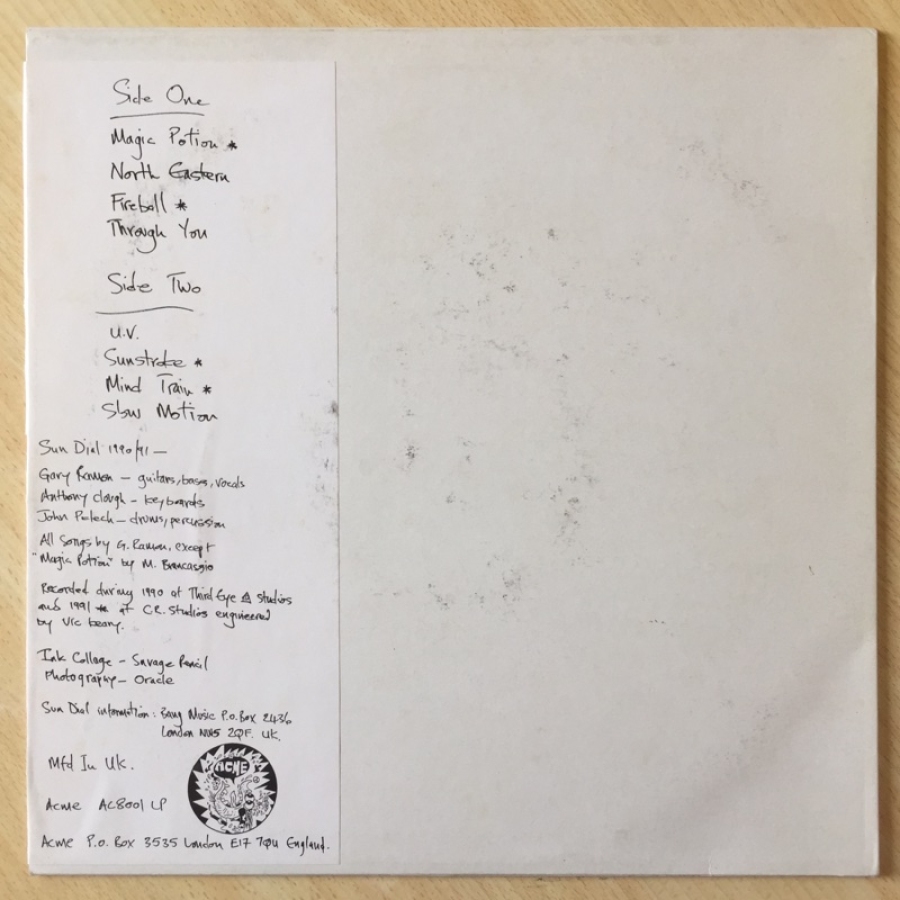 Side One
Magic Potion *
North Eastern
Fireball *
Through You
Side Two
U.V.
Sunstroke *
Mind Train *
Slow Motion
Sun Dial 1990/91 —
Gary Ramon — guitars, bass, vocals
Anthony Clough — keyboards
John — drums, percussion
All Songs by G. Ramon, except
"Magic Potion" by M. Brancaccio
Recorded during 1990 at Third Eye studios
and 1991 * at C.R. Studios engineered
by Vic Keary.
Ink Collage — Savage Pencil
Photography — Oracle
Sun Dial information: Bang Music P.O. Box 2436
London NW5 2QF. UK.
Mfd In UK.
ACME
Acme AC8001 LP
Acme P.O. Box 3535 London E17 7QU England.